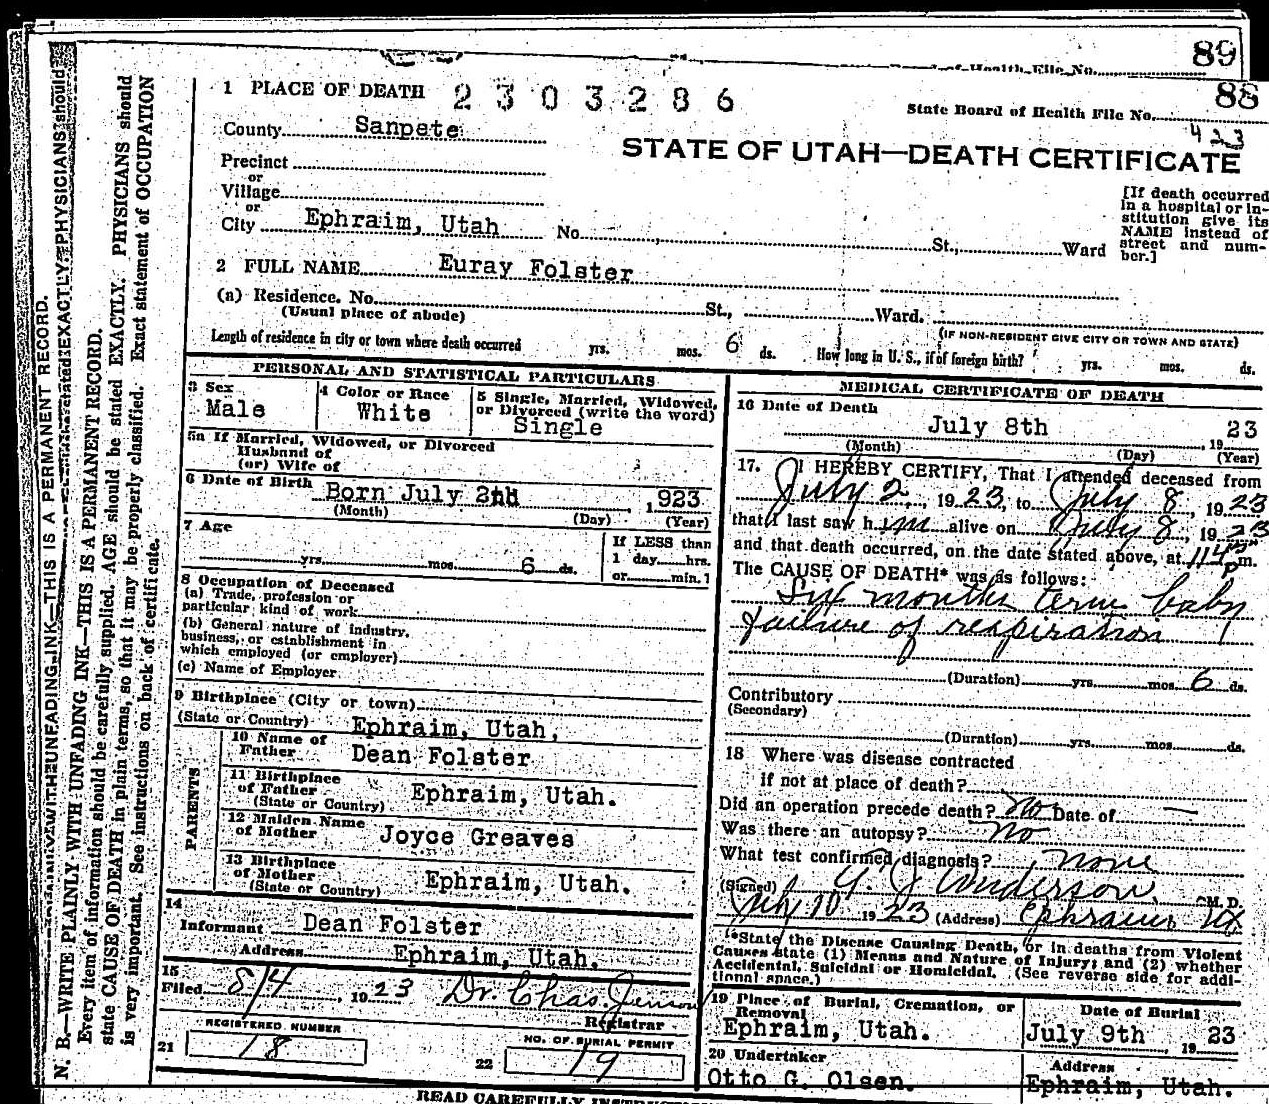 89
of Health File No.
1 PLACE OF DEATH 2303286
State Board of Health File No. 88
423
County Sanpete
STATE OF UTAH—DEATH CERTIFICATE
Precinct
or
Village
or
City Ephraim, Utah No. St., Ward
[If death occurred
in a hospital or in-
stitution give its
NAME instead of
street and num-
ber.]
2 FULL NAME Euray Folster
(a) Residence. No. St., Ward.
(Usual place of abode)
(IF NON-RESIDENT GIVE CITY OR TOWN AND STATE)
Length of residence in city or town where death occurred yrs. mos. 6 ds. How long in U. S., if of foreign birth? yrs. mos. ds.
PERSONAL AND STATISTICAL PARTICULARS
3 Sex
Male
4 Color or Race
White
5 Single, Married, Widowed,
or Divorced (write the word)
Single
5a If Married, Widowed, or Divorced
Husband of
(or) Wife of
6 Date of Birth Born July 2nd, 1923
(Month) (Day) (Year)
7 Age
yrs. mos. 6 ds.
If LESS than
1 day hrs.
or min. ?
8 Occupation of Deceased
(a) Trade, profession or
particular kind of work
(b) General nature of industry,
business, or establishment in
which employed (or employer)
(c) Name of Employer
9 Birthplace (City or town)
(State or Country) Ephraim, Utah.
PARENTS
10 Name of
Father Dean Folster
11 Birthplace
of Father
(State or Country) Ephraim, Utah.
12 Maiden Name
of Mother Joyce Greaves
13 Birthplace
of Mother
(State or Country) Ephraim, Utah.
14
Informant Dean Folster
Address Ephraim, Utah.
15
Filed 8/4, 1923 Dr. Chas. Jenson
Registrar
REGISTERED NUMBER
21 18
NO. OF BURIAL PERMIT
22 19
MEDICAL CERTIFICATE OF DEATH
16 Date of Death
July 8th, 1923
(Month) (Day) (Year)
17. I HEREBY CERTIFY, That I attended deceased from
July 2, 1923, to July 8, 1923
that I last saw him alive on July 8, 1923
and that death occurred, on the date stated above, at pm.
The CAUSE OF DEATH* was as follows:
Six months term baby
failure of respiration
(Duration) yrs. mos. 6 ds.
Contributory
(Secondary)
(Duration) yrs. mos. ds.
18 Where was disease contracted
if not at place of death?
Did an operation precede death? No Date of —
Was there an autopsy? No
What test confirmed diagnosis? none
(Signed) Anderson, M. D.
July 10 1923 (Address) Ephraim Ut.
*State the Disease Causing Death, or in deaths from Violent
Causes state (1) Means and Nature of Injury; and (2) whether
Accidental, Suicidal or Homicidal. (See reverse side for addi-
tional space.)
19 Place of Burial, Cremation, or
Removal
Ephraim, Utah.
Date of Burial
July 9th, 1923
20 Undertaker
Otto G. Olsen.
Address
Ephraim, Utah.
READ CAREFULLY
N. B.—WRITE PLAINLY WITH UNFADING INK—THIS IS A PERMANENT RECORD.
Every item of information should be carefully supplied. AGE should be stated EXACTLY. PHYSICIANS should
state CAUSE OF DEATH in plain terms, so that it may be properly classified. Exact statement of OCCUPATION
is very important. See instructions on back of certificate.